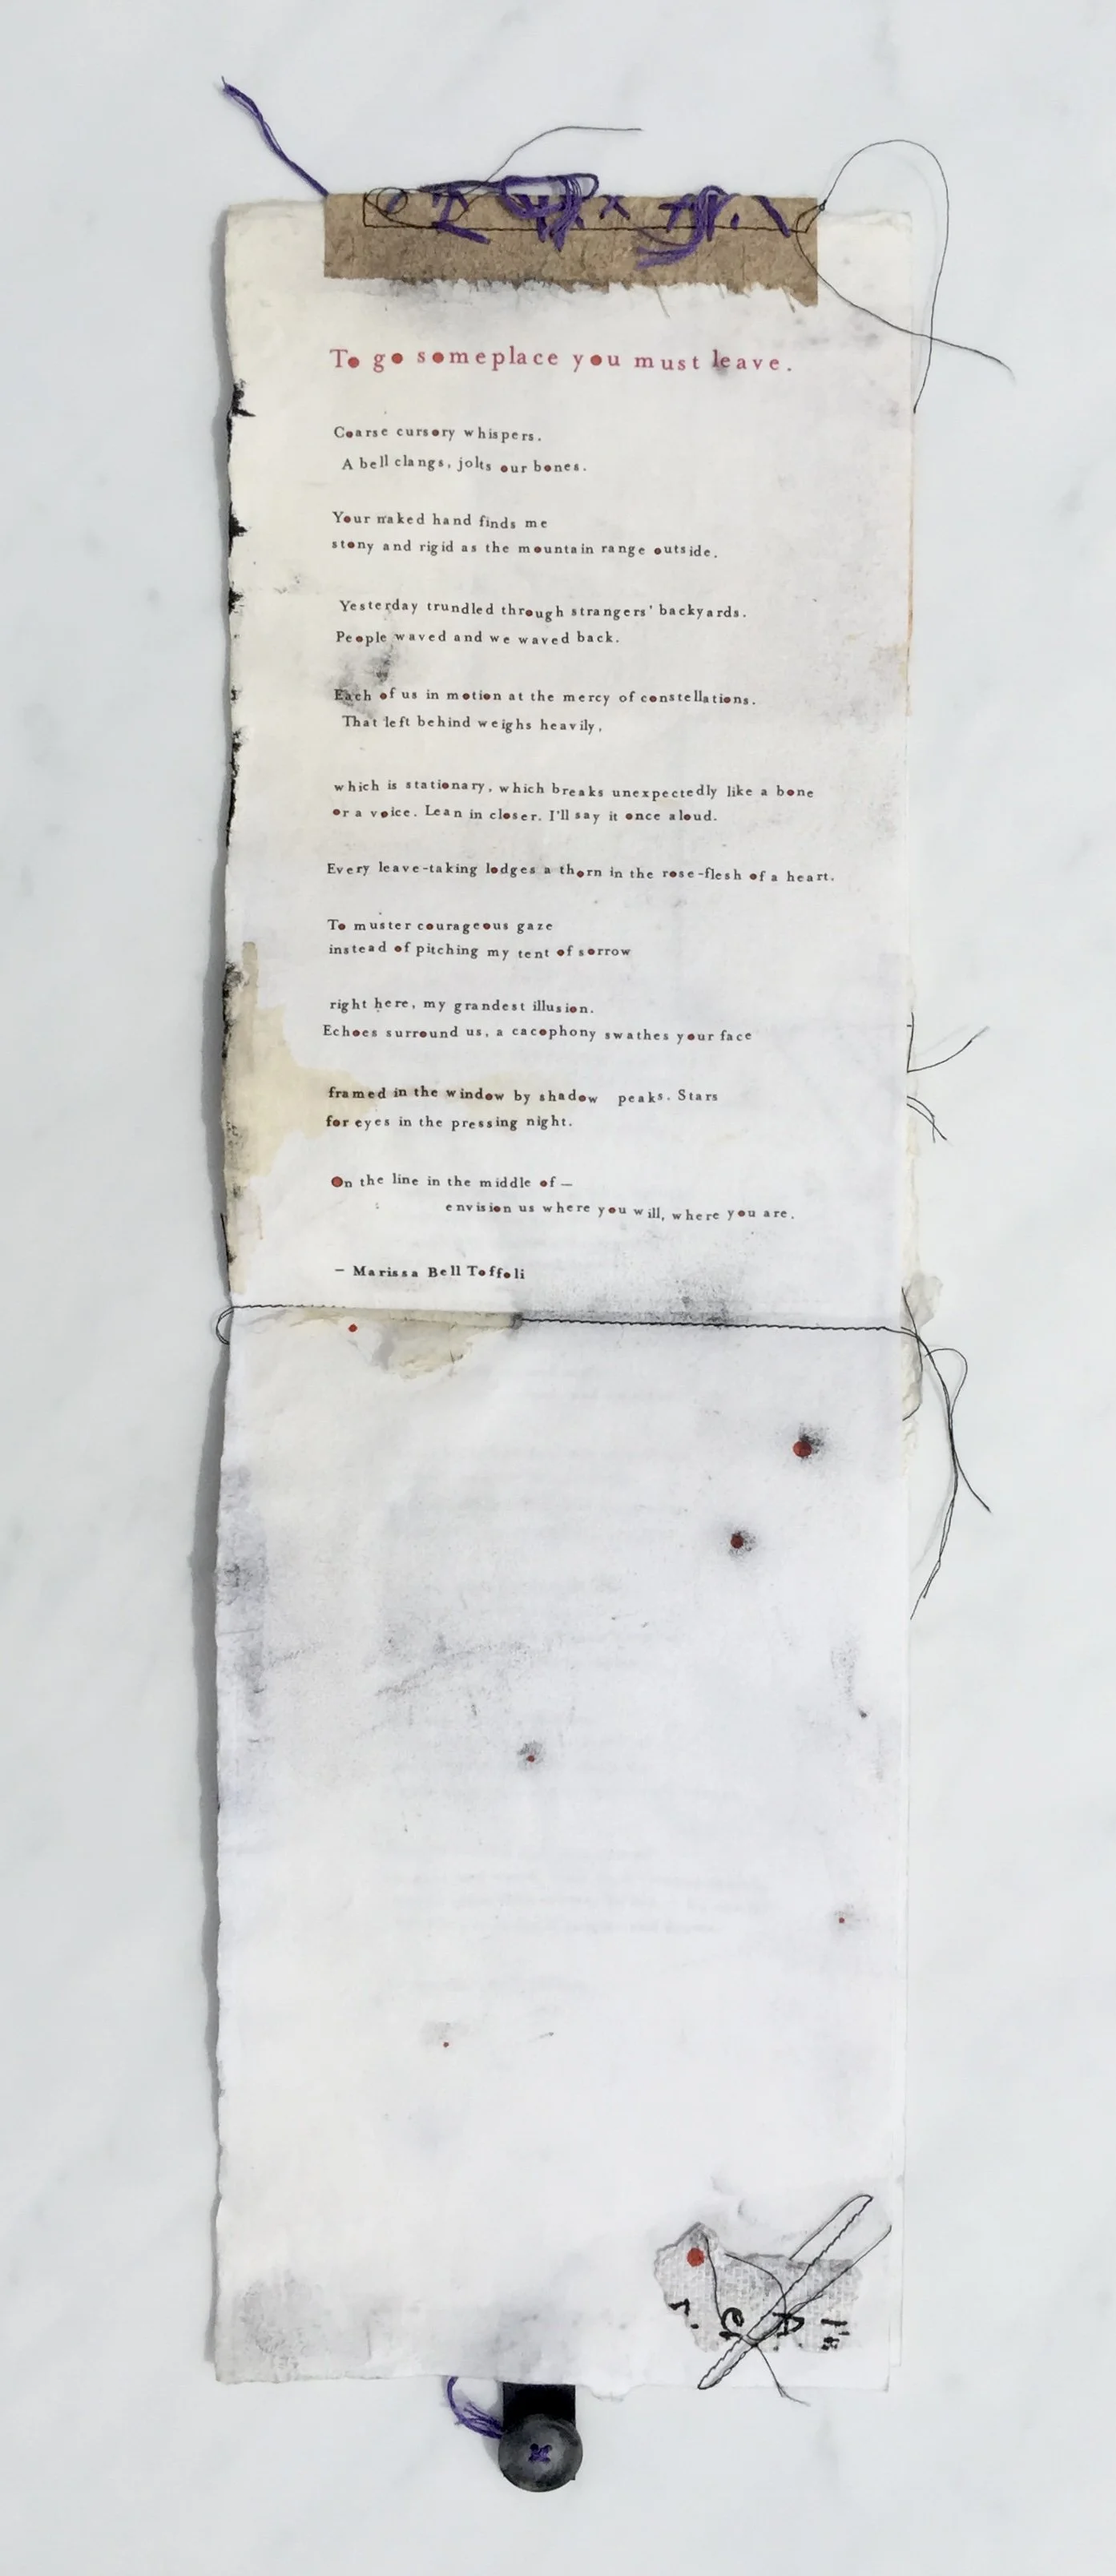 To go someplace you must leave.
Coarse cursory whispers.
A bell clangs, jolts our bones.
Your naked hand finds me
stony and rigid as the mountain range outside.
Yesterday trundled through strangers' backyards.
People waved and we waved back.
Each of us in motion at the mercy of constellations.
That left behind weighs heavily,
which is stationary, which breaks unexpectedly like a bone
or a voice. Lean in closer. I'll say it once aloud.
Every leave-taking lodges a thorn in the rose-flesh of a heart.
To muster courageous gaze
instead of pitching my tent of sorrow
right here, my grandest illusion.
Echoes surround us, a cacophony swathes your face
framed in the window by shadow peaks. Stars
for eyes in the pressing night.
On the line in the middle of—
envision us where you will, where you are.
– Marissa Bell Toffoli